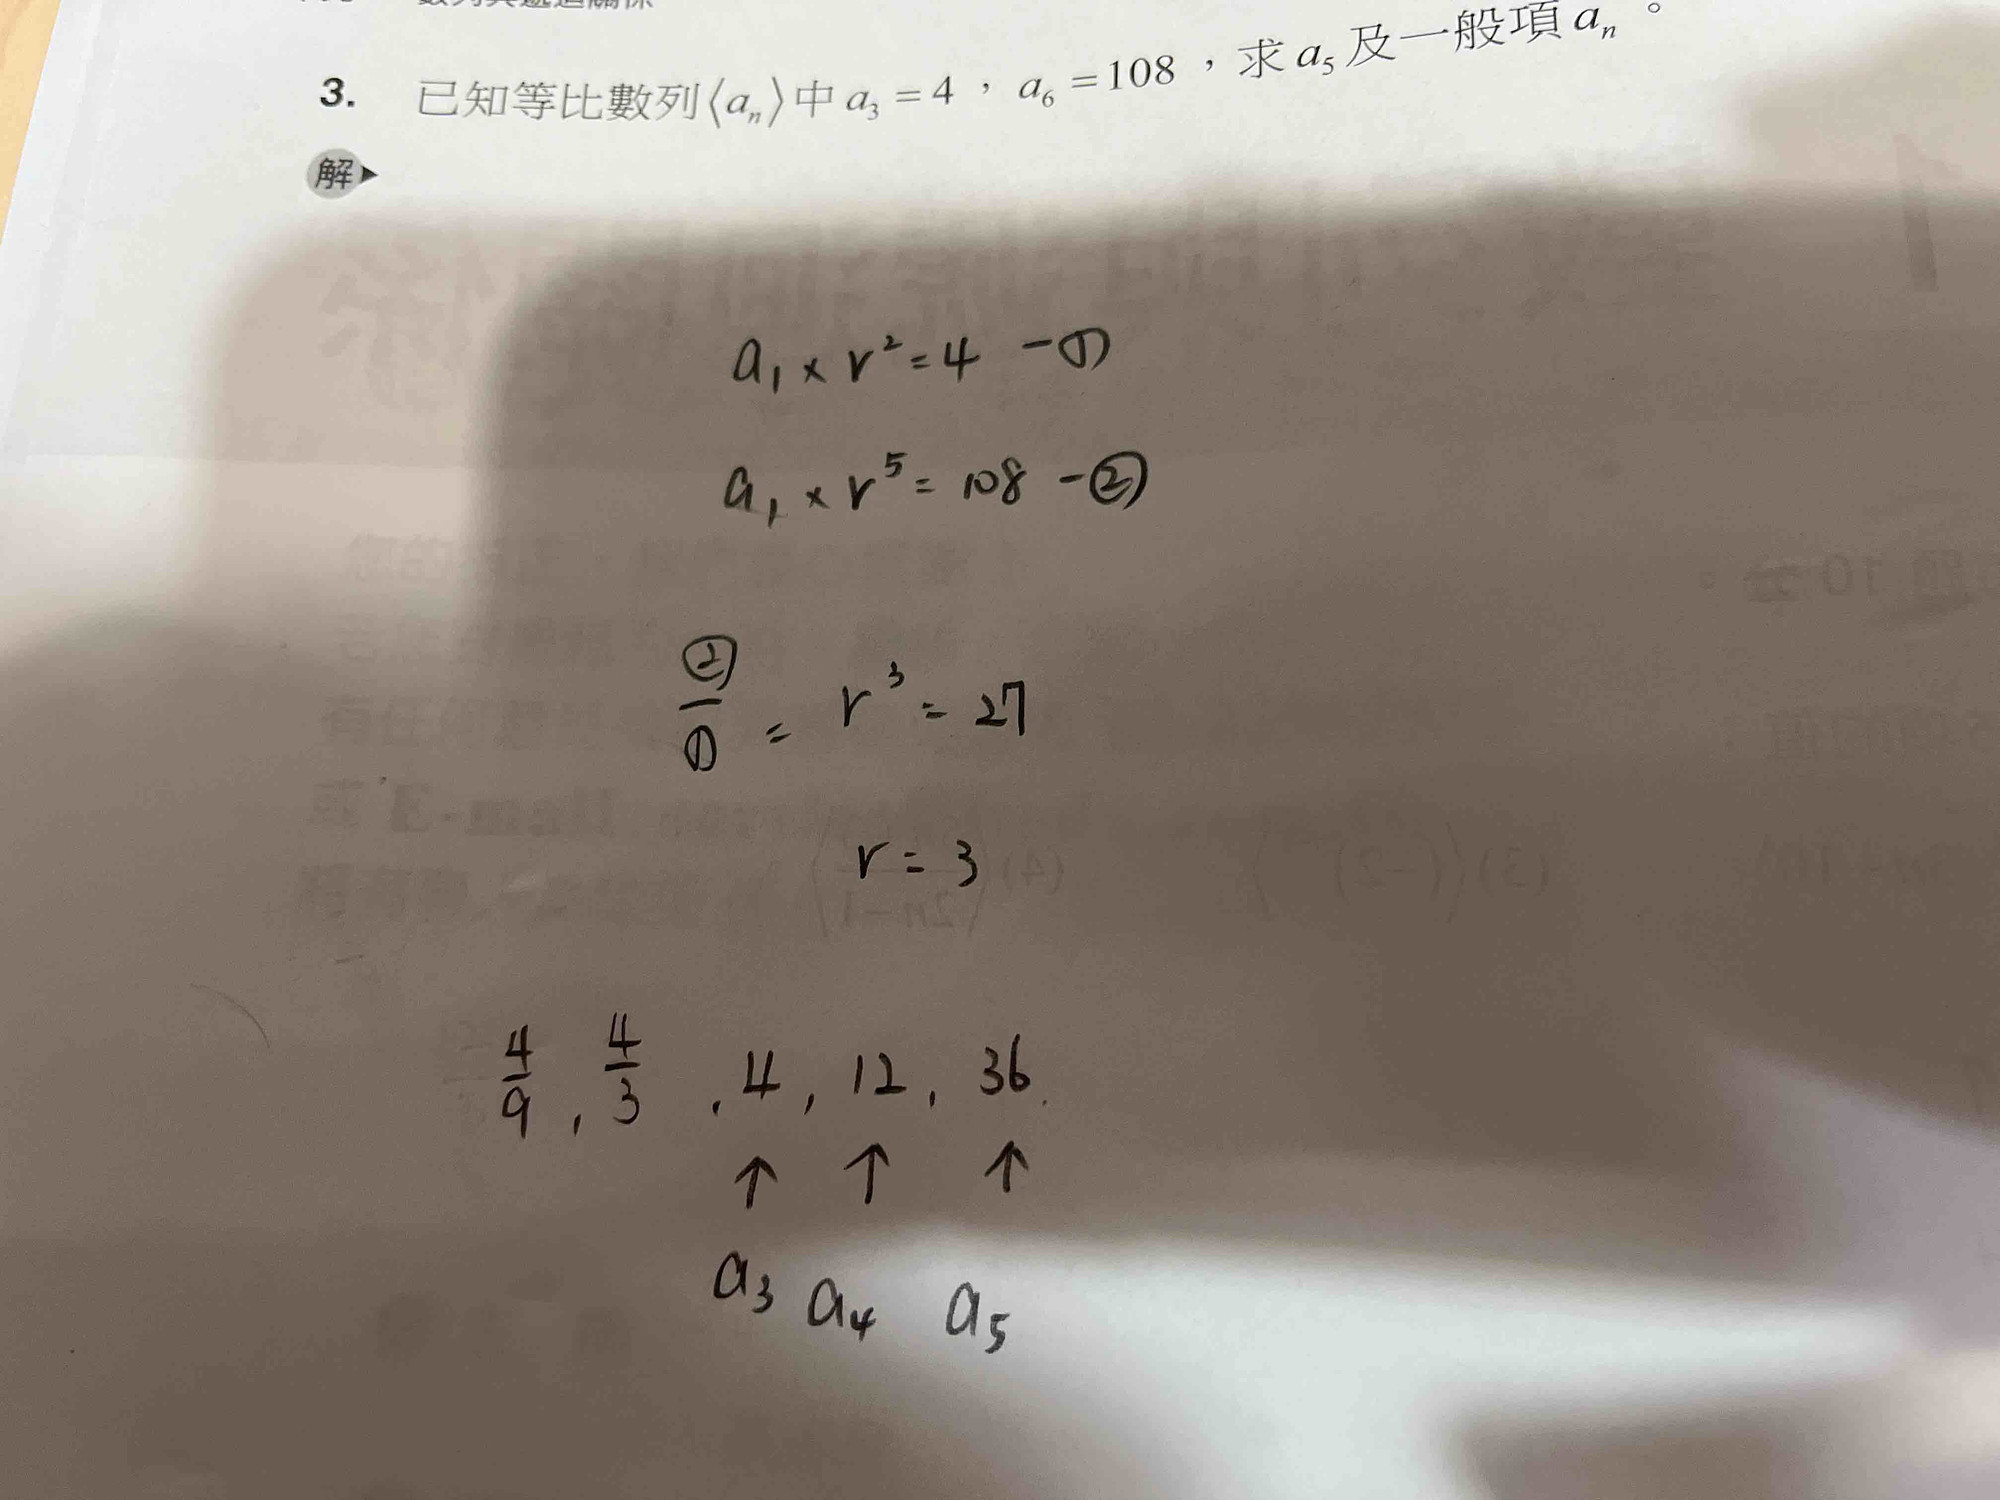 3. 已知等比數列⟨aₙ⟩中 a₃ = 4，a₆ = 108，求 a₅ 及一般項 aₙ。
解▶
a₁ × r² = 4 -①
a₁ × r⁵ = 108 -②
②/① = r³ = 27
r = 3
4/9, 4/3, 4, 12, 36.
↑ ↑ ↑
a₃ a₄ a₅